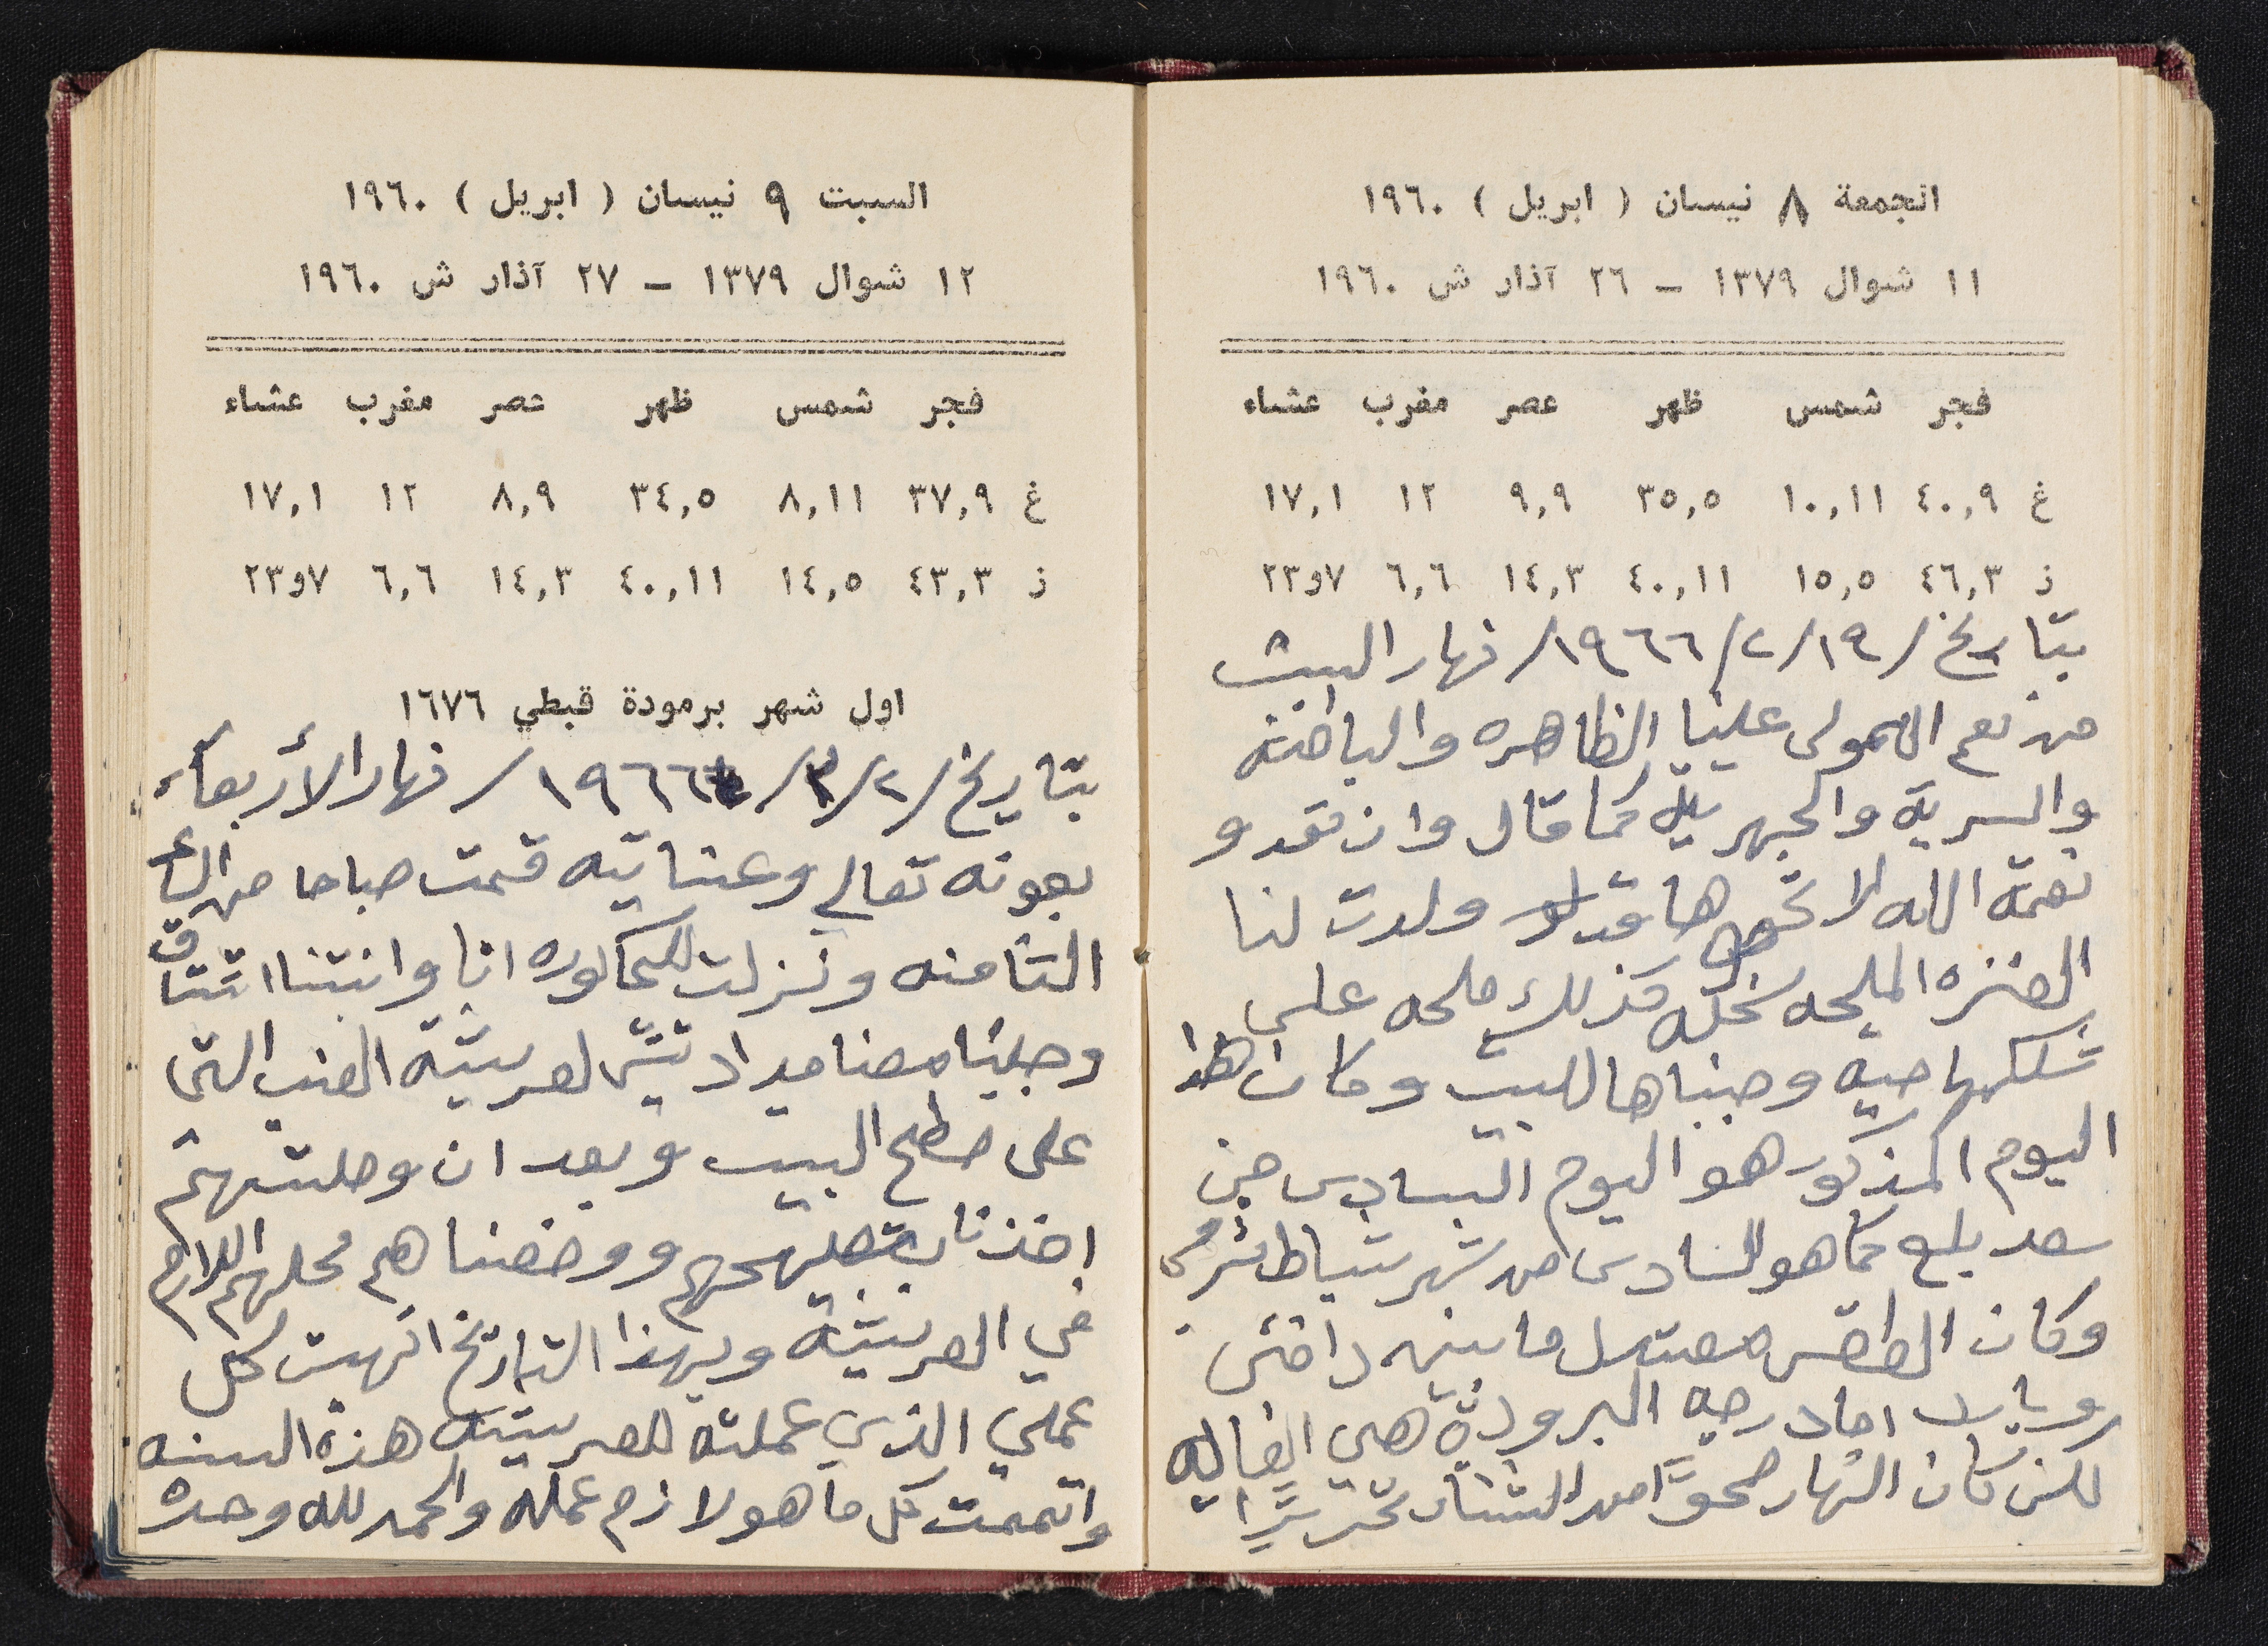 الجمعة ٨ نيسان ( ابريل ) ١٩٦٠
١١ شوال ١٣٧٩ - ٢٦ آذار ش ١٩٦٠
فجر شمس ظهر عصر مغرب عشاء
غ ٤٠,٩ ١٠,١١ ٣٥,٥ ٩,٩ ١٢ ١٧,١
ز ٤٦,٣ ١٥,٥ ٤٠,١١ ١٤,٣ ٦,٦ ٧و٢٣
بتاريخ /١٩/٢/١٩٦٦/ نهار السبت
من نعم المولى علينا الظاهره والباطنه
والسرية والجهرية كما قال وان تعدو
نعمة الله لا تحصوها قد ولدت لنا
العنزه المليحه سخله كذلك ملحه على
شكلها حيه وجبناها للبيت وكان هذا
اليوم المذكور هو اليوم السادس من
سعد بلع كما هو السادس من شهر شباط شرقي
وكان الطقس معتدل ما بين دافئ
وبارد اما درجه البرودة هي الغاليه
لكن كان النهار صحوًا من الشتاء تحريرًا
السبت ٩ نيسان ( ابريل ) ١٩٦٠
١٢ شوال ١٣٧٩ - ٢٧ آذار ش ١٩٦٠
فجر شمس ظهر عصر مغرب عشاء
غ ٣٧,٩ ٨,١١ ٣٤,٥ ٨,٩ ١٢ ١٧,١
ز ٤٣,٣ ١٤,٥ ٤٠,١١ ١٤,٣ ٦,٦ ٧و٢٣
اول شهر برمودة قبطي ١٦٧٦
بتاريخ /٢/٣/١٩٦٦/ نهار الأربعاء
بعونه تعالى وعنايته قمت صباحا من الساعة
الثامنه ونزلت للحاكوره انا وانتنا اشتاق
وجبنا معنا لعريشة العنب التي
على صطح البيت وبعد ان وصلتهم
اخذنا بتصليحهم ووضعناهم محلهم اللازم
في العريشة وبهذا التاريخ انهيت كل
عملي الذي عملته للعريشه هذه السنه
واتممت كل ما هو لازم عمله والحمد لله وحده